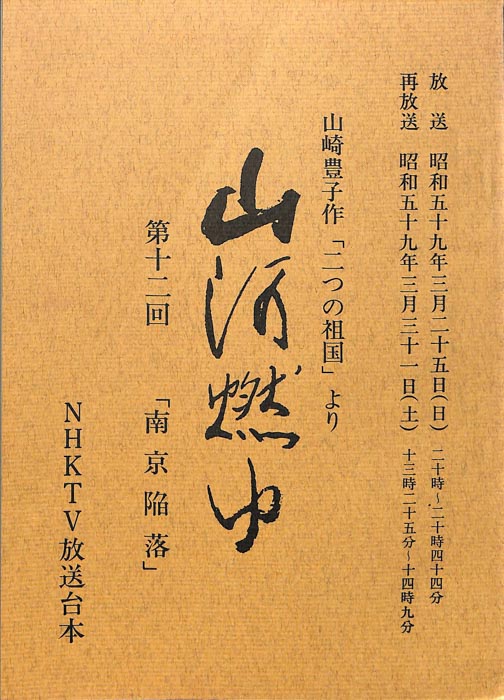 放送 昭和五十九年三月二十五日(日) 二十時~二十時四十四分
再放送 昭和五十九年三月三十一日(土) 十三時二十五分~十四時九分
山崎豊子作「二つの祖国」より
山河燃ゆ
第十二回 「南京陥落」
NHKTV放送台本